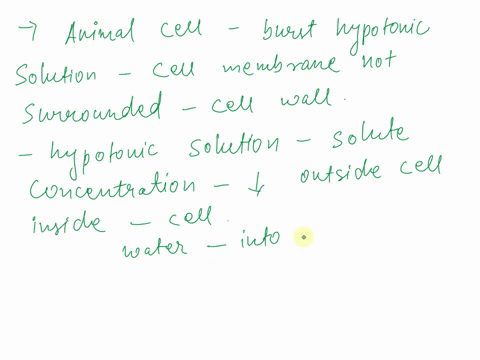 → Animal cell - burst hypotonic
Solution - cell membrane not
Surrounded - cell wall.
- hypotonic solution - solute
concentration - ↓ outside cell
inside - cell.
water - into